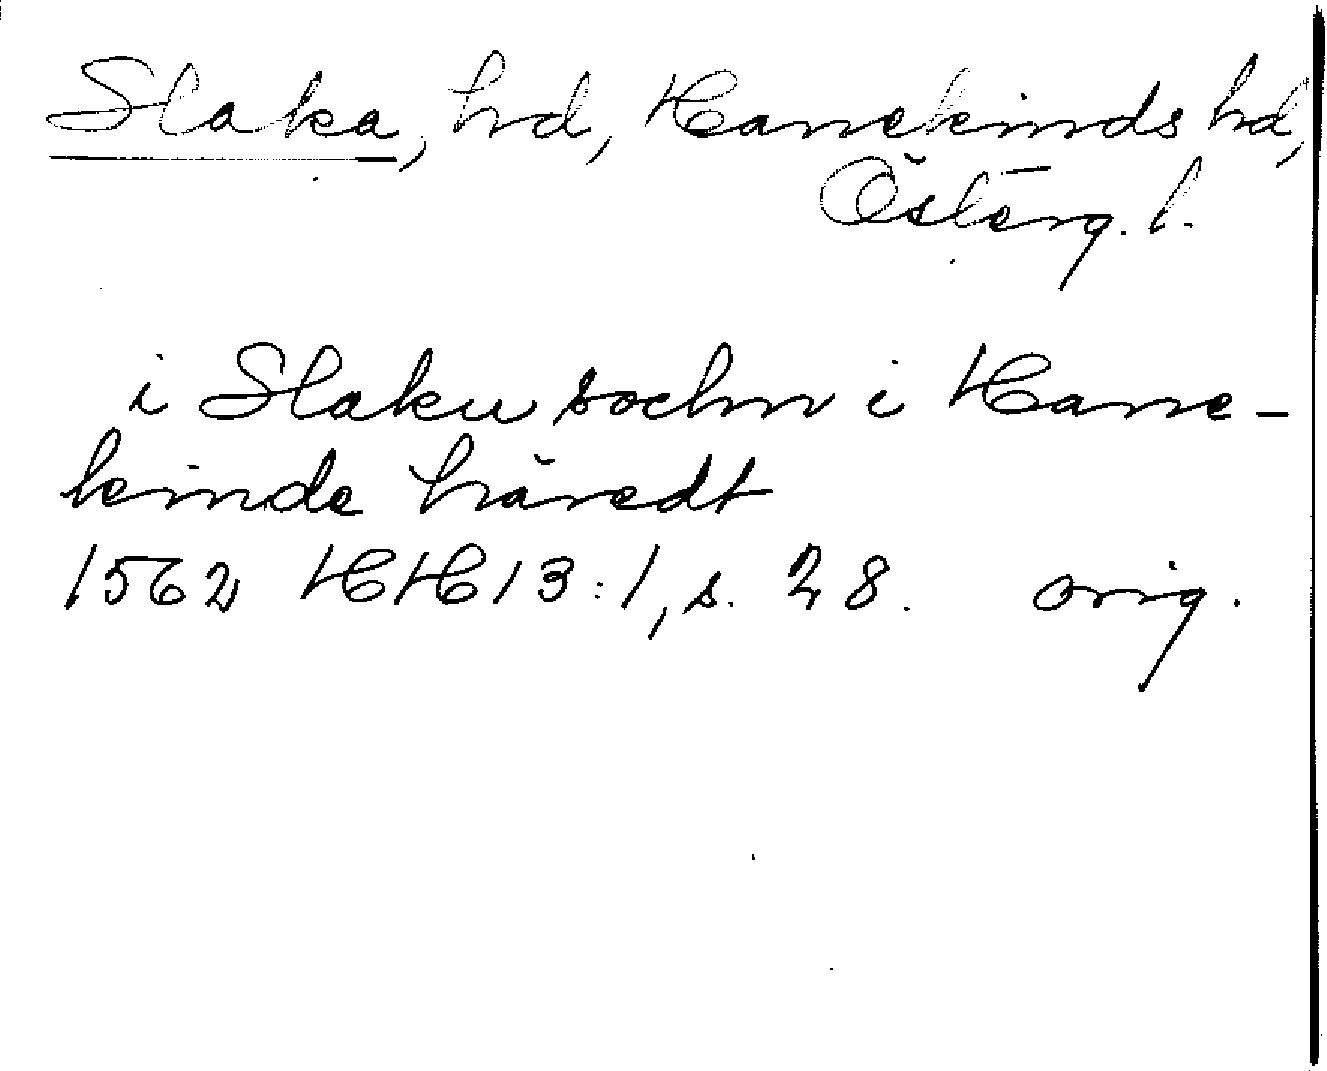 Slaka, hd, Hanekinds hd,
Österg. l.
i Slaku sochn i Hane-
kinde häredt
1562 HH 13:1, s. 28. orig.